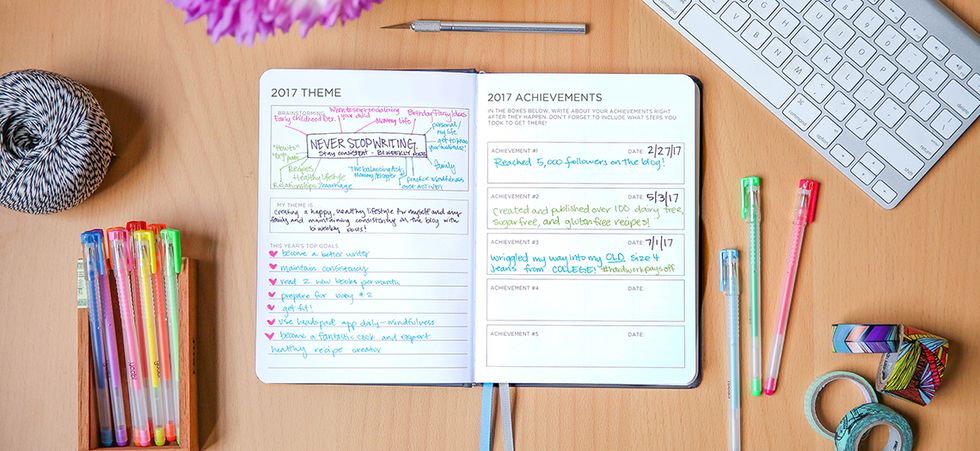 2017 THEME
BRAINSTORMING
Early childhood Dev.
your child
Mommy life
Birthday/Party/Ideas
personal/
my life
"How to's"
NEVER STOP WRITING.
Stay consistent - BI WEEKLY
family
Recipes
Healthy lifestyle
Relationships/marriage
The balancing Act
practice mindfulness
MY THEME IS
creating a happy, healthy lifestyle for myself and my
family and maintaining consistency on the blog with
biweekly posts!
THIS YEAR'S TOP GOALS
become a better writer
maintain consistency
read 2 new books per month
prepare for baby #2
get fit!
use headspace app daily - mindfulness
become a fantastic cook and
healthy recipe creator
2017 ACHIEVEMENTS
IN THE BOXES BELOW, WRITE ABOUT YOUR ACHIEVEMENTS RIGHT
AFTER THEY HAPPEN. DON'T FORGET TO INCLUDE WHAT STEPS YOU
TOOK TO GET THERE!
ACHIEVEMENT #1 DATE: 2/27/17
Reached 5,000 followers on the blog!
ACHIEVEMENT #2 DATE: 5/3/17
Created and published over 100 dairy free,
sugar free, and gluten free recipes!
ACHIEVEMENT #3 DATE: 7/1/17
wriggled my way into my OLD size 4
jeans from COLLEGE! #hardworkpaysoff
ACHIEVEMENT #4 DATE:
ACHIEVEMENT #5 DATE: